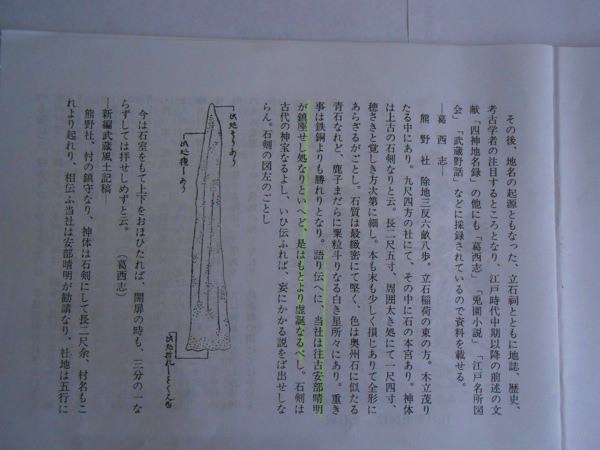 その後、地名の起源ともなった、立石祠とともに地誌、歴史、
考古学者の注目するところとなり、江戸時代中期以降の前述の文
献「四神地名録」の他にも「葛西志」「兎園小説」「江戸名所図
会」「武蔵野話」などに採録されているので資料を載せる。
―葛西志―
熊野社　除地三反六畝八歩。立石稲荷の東の方。木立茂り
たる中にあり。九尺四方の社にて、その中に石の本宮あり。神体
は上古の石剣なりと云。長二尺五寸、周囲太き処にて一尺四寸、
穂さきと覚しき方次第に細し。本も末も少しく損じありて全形に
あらざるがごとし。石質は最緻密にて堅く、色は奥州石に似たる
青石なれど、鹿子まだらに粟粒斗りなる白き星所々にあり。重き
事は鉄銅よりも勝れりとなり。語り伝へに、当社は往古安部晴明
が鎮座せし処なりといへど、是はもとより虚誕なるべし。石剣は
古代の神宝なるよし、いひ伝ふれば、妄にかかる説をば出せしな
らん。石剣の図左のごとし
此処
此処
此処
今は石室をもて上下をおほひたれば、開扉の時も、三分の一な
らずしては拝せしめずと云。（葛西志）
―新編武蔵風土記稿―
熊野社、村の鎮守なり、神体は石剣にして長二尺余、村名もこ
れより起れり、相伝ふ当社は安部晴明が勧請なり、社地は五行に